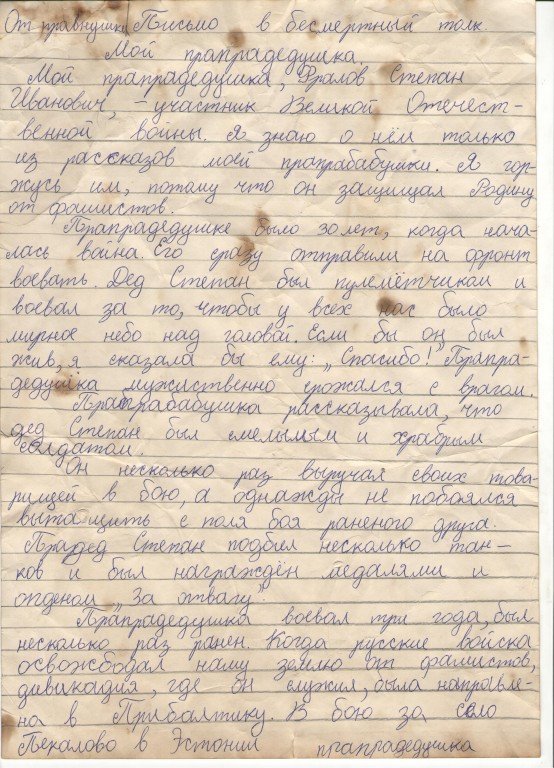 От правнушки Письмо в бесмертный полк.
Мой прапрадедушка.
Мой прапрадедушка, Фралов Степан
Иванович, - участник Великой Отечест-
венной войны. Я знаю о нём только
из рассказов моей прапрабабушки. Я гор-
жусь им, потому что он защищал Родину
от фашистов.
Прапрадедушке было 30 лет, когда нача-
лась война. Его сразу отправили на фронт
воевать. Дед Степан был пулемётчиком и
воевал за то, чтобы у всех нас было
мирное небо над головай. Если бы он был
жив, я сказала бы ему: „Спасибо!" Прапра-
дедушка мужиственно срожался с врагом.
Прапрабабушка рассказывала, что
дед Степан был смелымым и храбрым
солдатом.
Он несколько раз выручал своих това-
рищей в бою, а однажды не побоялся
вытащить с поля боя раненого друга.
Прадед Степан подбил несколько тан-
ков и был награждён медалями и
орденом „За отвагу".
Прапрадедушка воевал три года, был
несколько раз ранен. Когда русские войска
освожбодал нашу землю от фашистов,
дивикадия, где он служил, была направле-
на в Прибалтику. В бою за село
Пекалово в Эстонии прапрадедушка